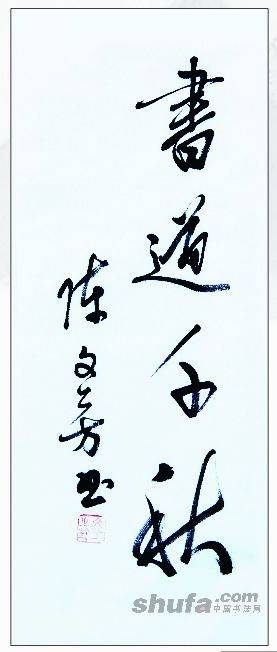 書道千秋
陈文芳书
shufa.com
中国书法网